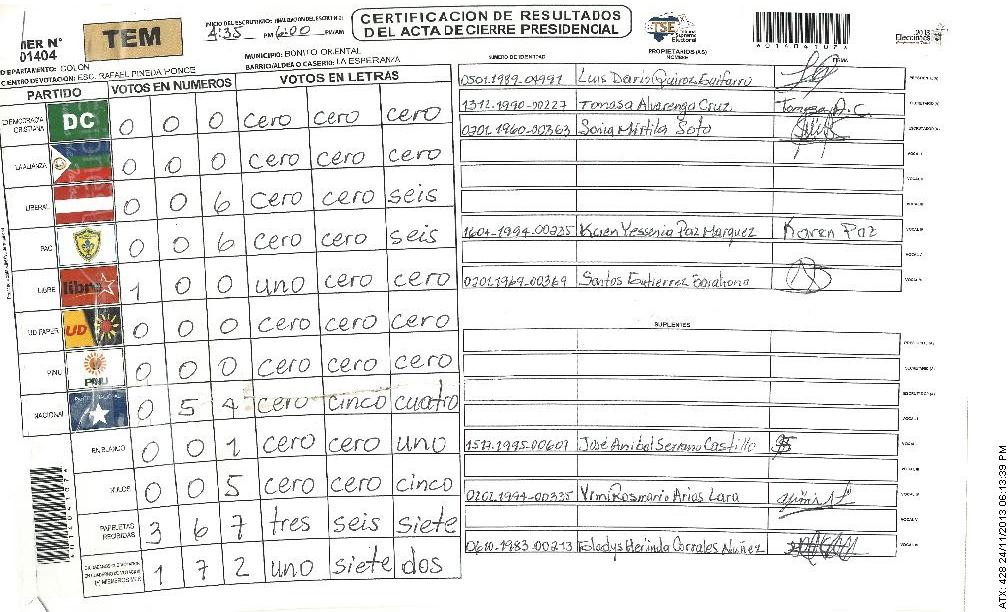 CERTIFICACION DE RESULTADOS
DEL ACTA DE CIERRE PRESIDENCIAL
TSE Tribunal Supremo Electoral
2013
Elecciones
A01404107A
MER N° 01404
TEM
INICIO DEL ESCRUTINIO:
4:35 PM 6:00 PM/AM
DEPARTAMENTO: COLON
MUNICIPIO: BONITO ORIENTAL
CENTRO DE VOTACION: ESC. RAFAEL PINEDA PONCE
BARRIO/ALDEA O CASERIO: LA ESPERANZA
PARTIDO VOTOS EN NUMEROS VOTOS EN LETRAS
DEMOCRACIA CRISTIANA DC 0 0 0 cero cero cero
LA ALIANZA 0 0 0 cero cero cero
LIBERAL 0 0 6 cero cero seis
PAC 0 0 6 cero cero seis
LIBRE libre 1 0 0 uno cero cero
UD FAPER UD 0 0 0 cero cero cero
PINU PINU 0 0 0 cero cero cero
NACIONAL 0 5 4 cero cinco cuatro
EN BLANCO 0 0 1 cero cero uno
NULOS 0 0 5 cero cero cinco
PAPELETAS RECIBIDAS 3 6 7 tres seis siete
1 7 2 uno siete dos
PROPIETARIOS (AS)
NUMERO DE IDENTIDAD NOMBRE FIRMA
Luis Dario Quiroz
1312-1990-00227 Tomasa Alvarenga Cruz Tomasa A.C.
0201-1960-00363 Sonia Mirtila Soto
1604-1994-00235 Karen Yessenia Paz Marquez Karen Paz
0201-1969-00369 Santos Gutierrez
SUPLENTES
José Anibal Serrano Castillo
0202-1994-00335 Rosmario Arias Lara
0610-1983-00213 Gladys Herlinda Corrales Nuñez
ATX: 428 24/11/2013 06:13:39 PM